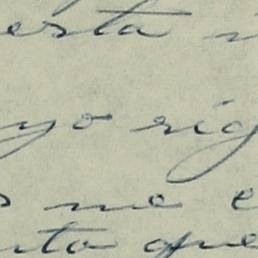 esta
yo rig
s me e
nto que